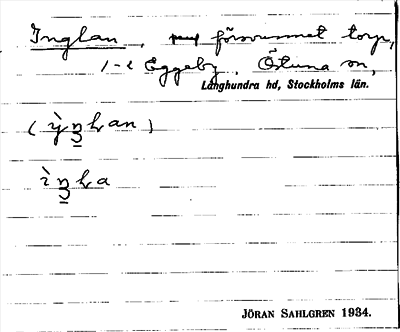 Inglan, försvunnet torp,
1-2 Eggeby, Östuna sn,
Långhundra hd, Stockholms län.
JÖRAN SAHLGREN 1934.